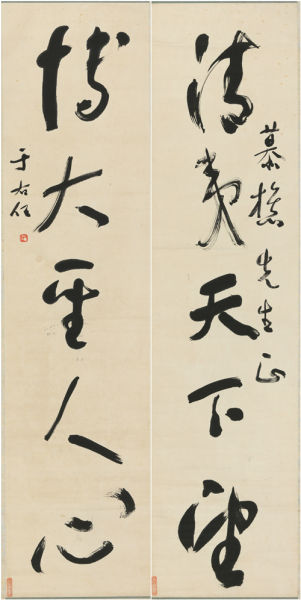 慕樵先生正
清夷天下望
博大聖人心
于右任